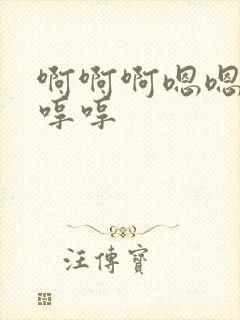 啊啊啊嗯嗯
哼哼
汪傳寶